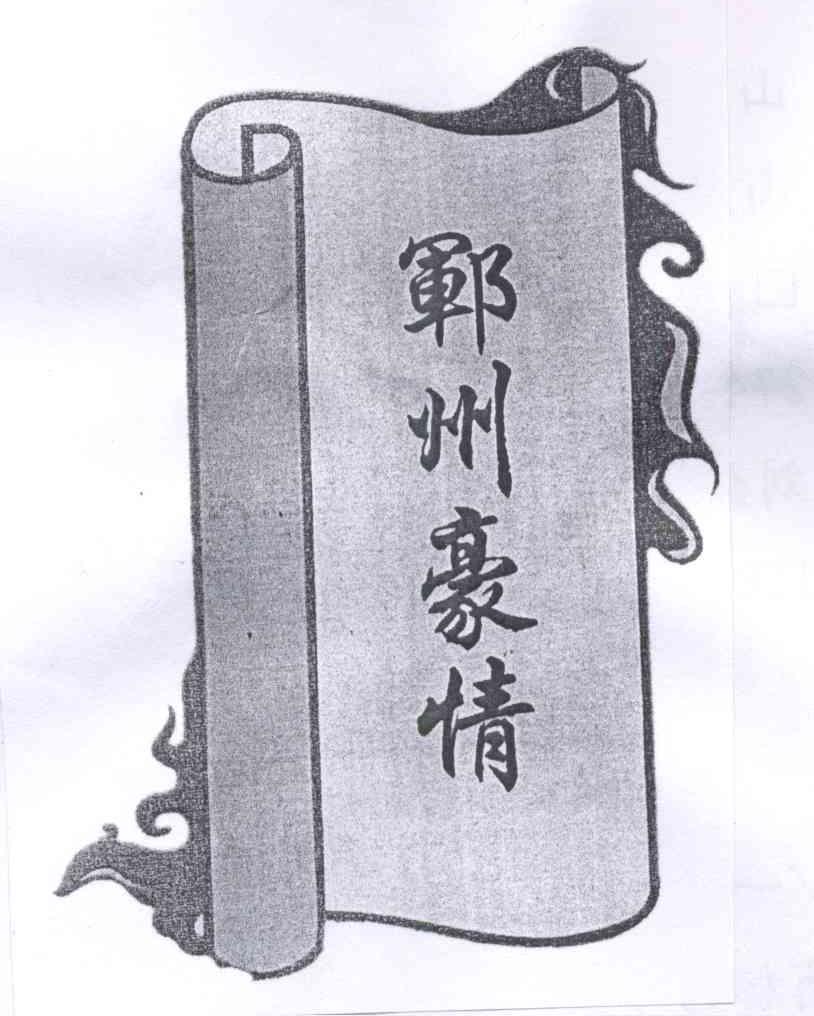 鄆州豪情